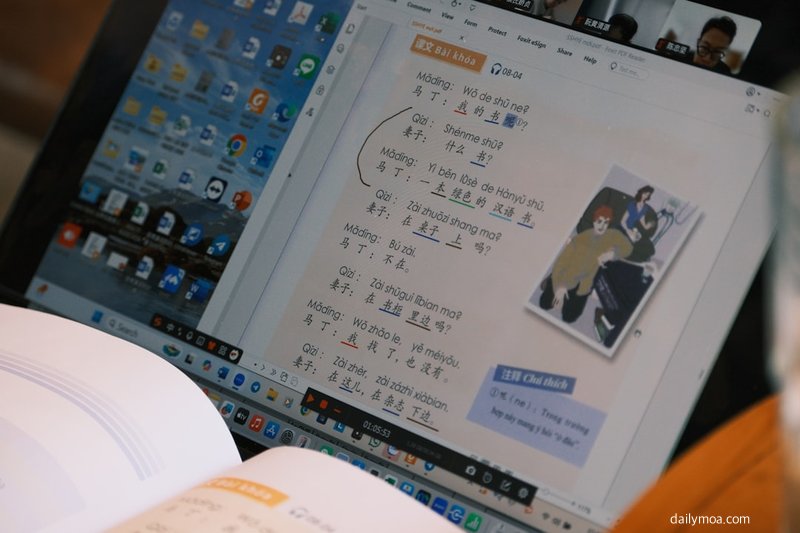 Comment
View
Form
Protect
Foxit eSign
Share
Help
课文 Bài khóa
08-04
Mǎdīng: Wǒ de shū ne?
马丁：我的书呢①?
Qīzi: Shénme shū?
妻子：什么书?
Mǎdīng: Yì běn lǜsè de Hànyǔ shū.
马丁：一本绿色的汉语书。
Qīzi: Zài zhuōzi shang ma?
妻子：在桌子上吗?
Mǎdīng: Bú zài.
马丁：不在。
Qīzi: Zài shūguì lǐbian ma?
妻子：在书柜里边吗?
Mǎdīng: Wǒ zhǎo le, yě méiyǒu.
马丁：我找了，也没有。
Qīzi: Zài zhèr, zài zázhì xiàbian.
妻子：在这儿，在杂志下边。
注释 Chú thích
①呢 (ne): Trong trường
hợp này mang ý hỏi "ở đâu".
Search
01:05:53
Bài khóa
08-04
Mǎdīng: Wǒ
dailymoa.com